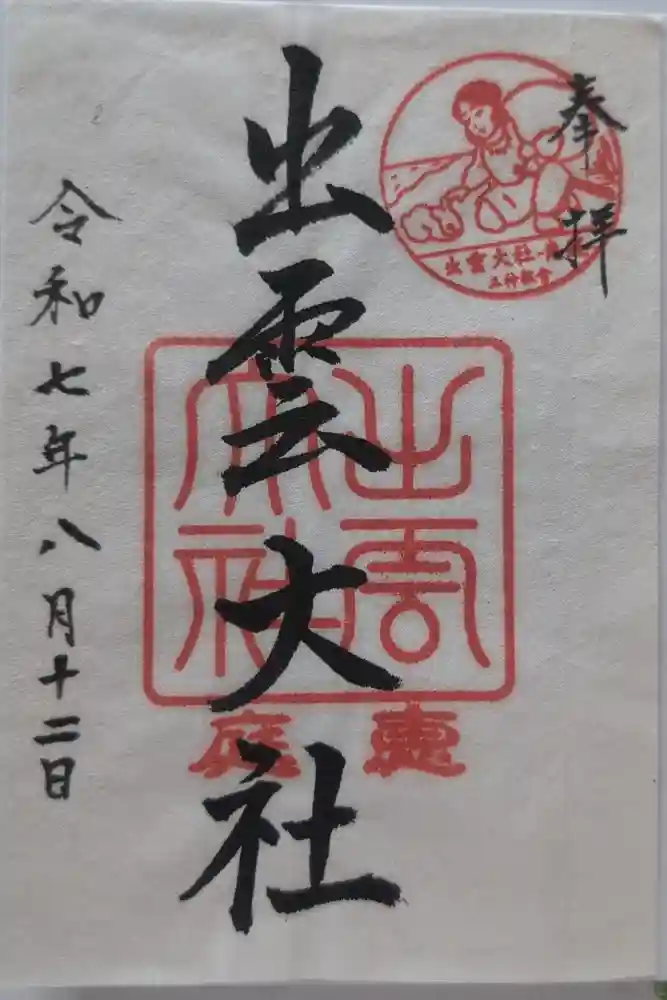 奉拝
出雲大社
令和七年八月十二日
出雲
大社
恵庭
出雲大社